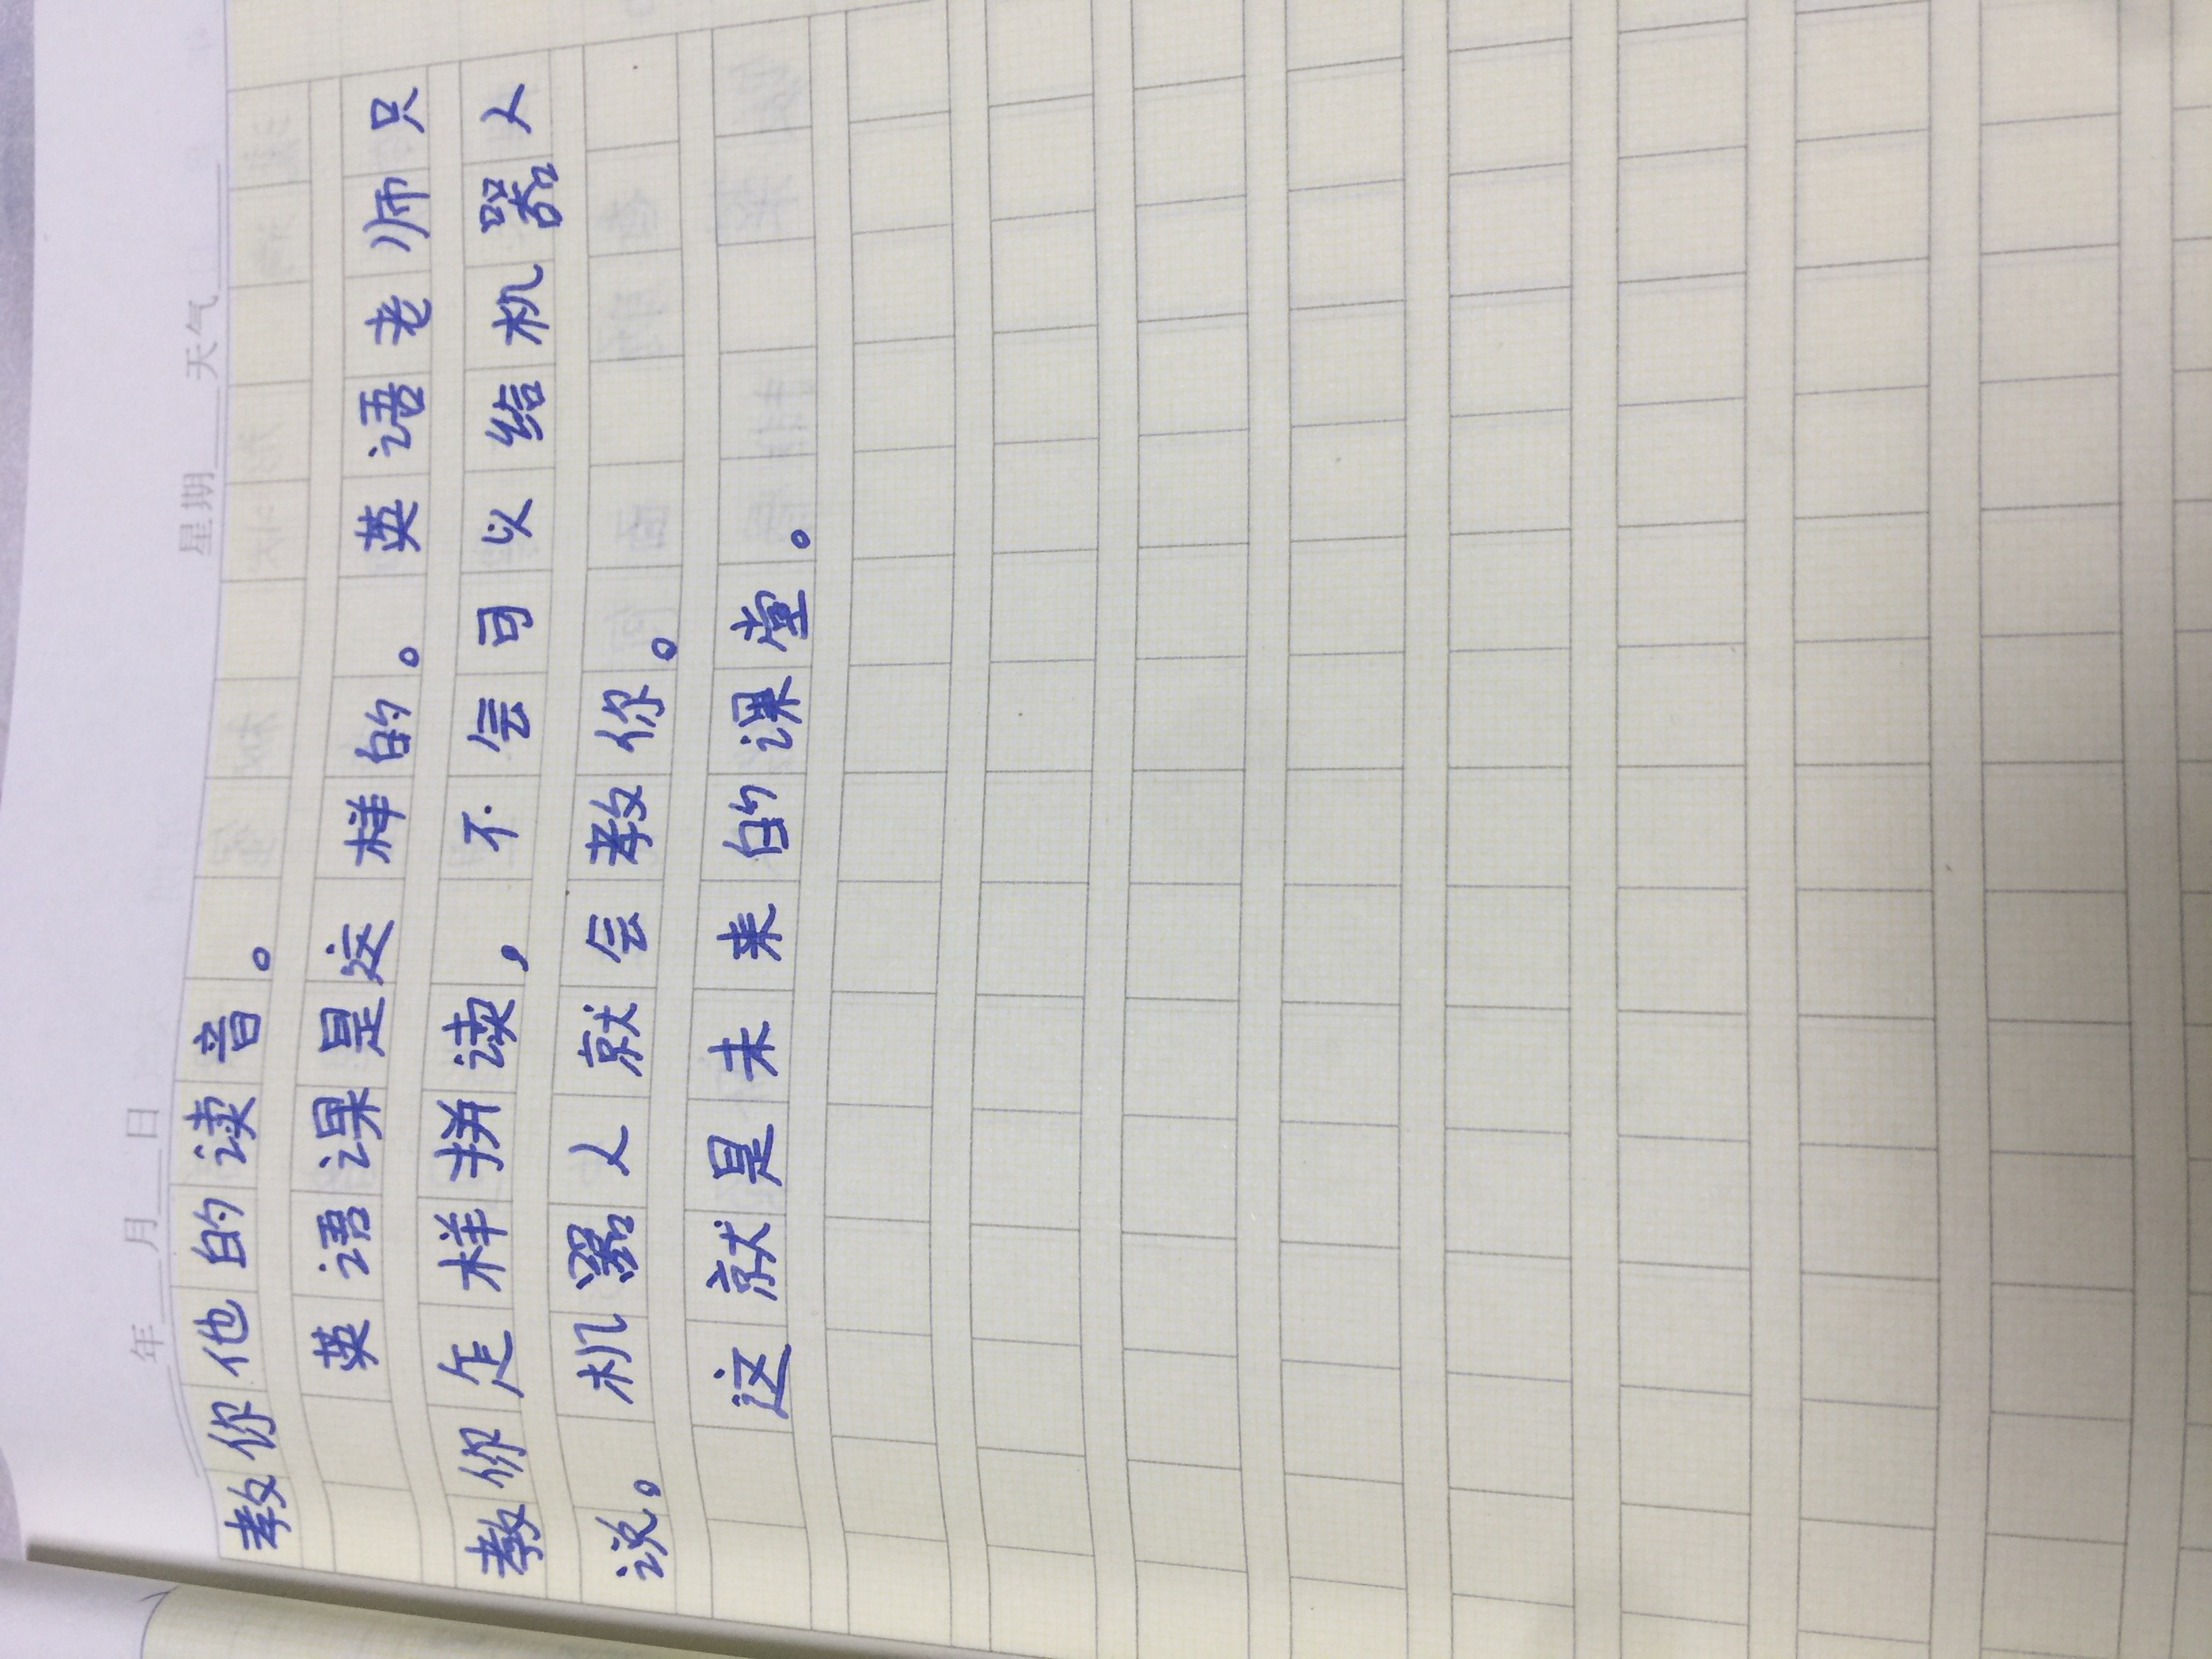 年 月 日 星期 天气
教你他的读音。
英语课是这样的。英语老师只
教你怎样拼读，不会可以给机器人
说。机器人就会教你。
这就是未来的课堂。